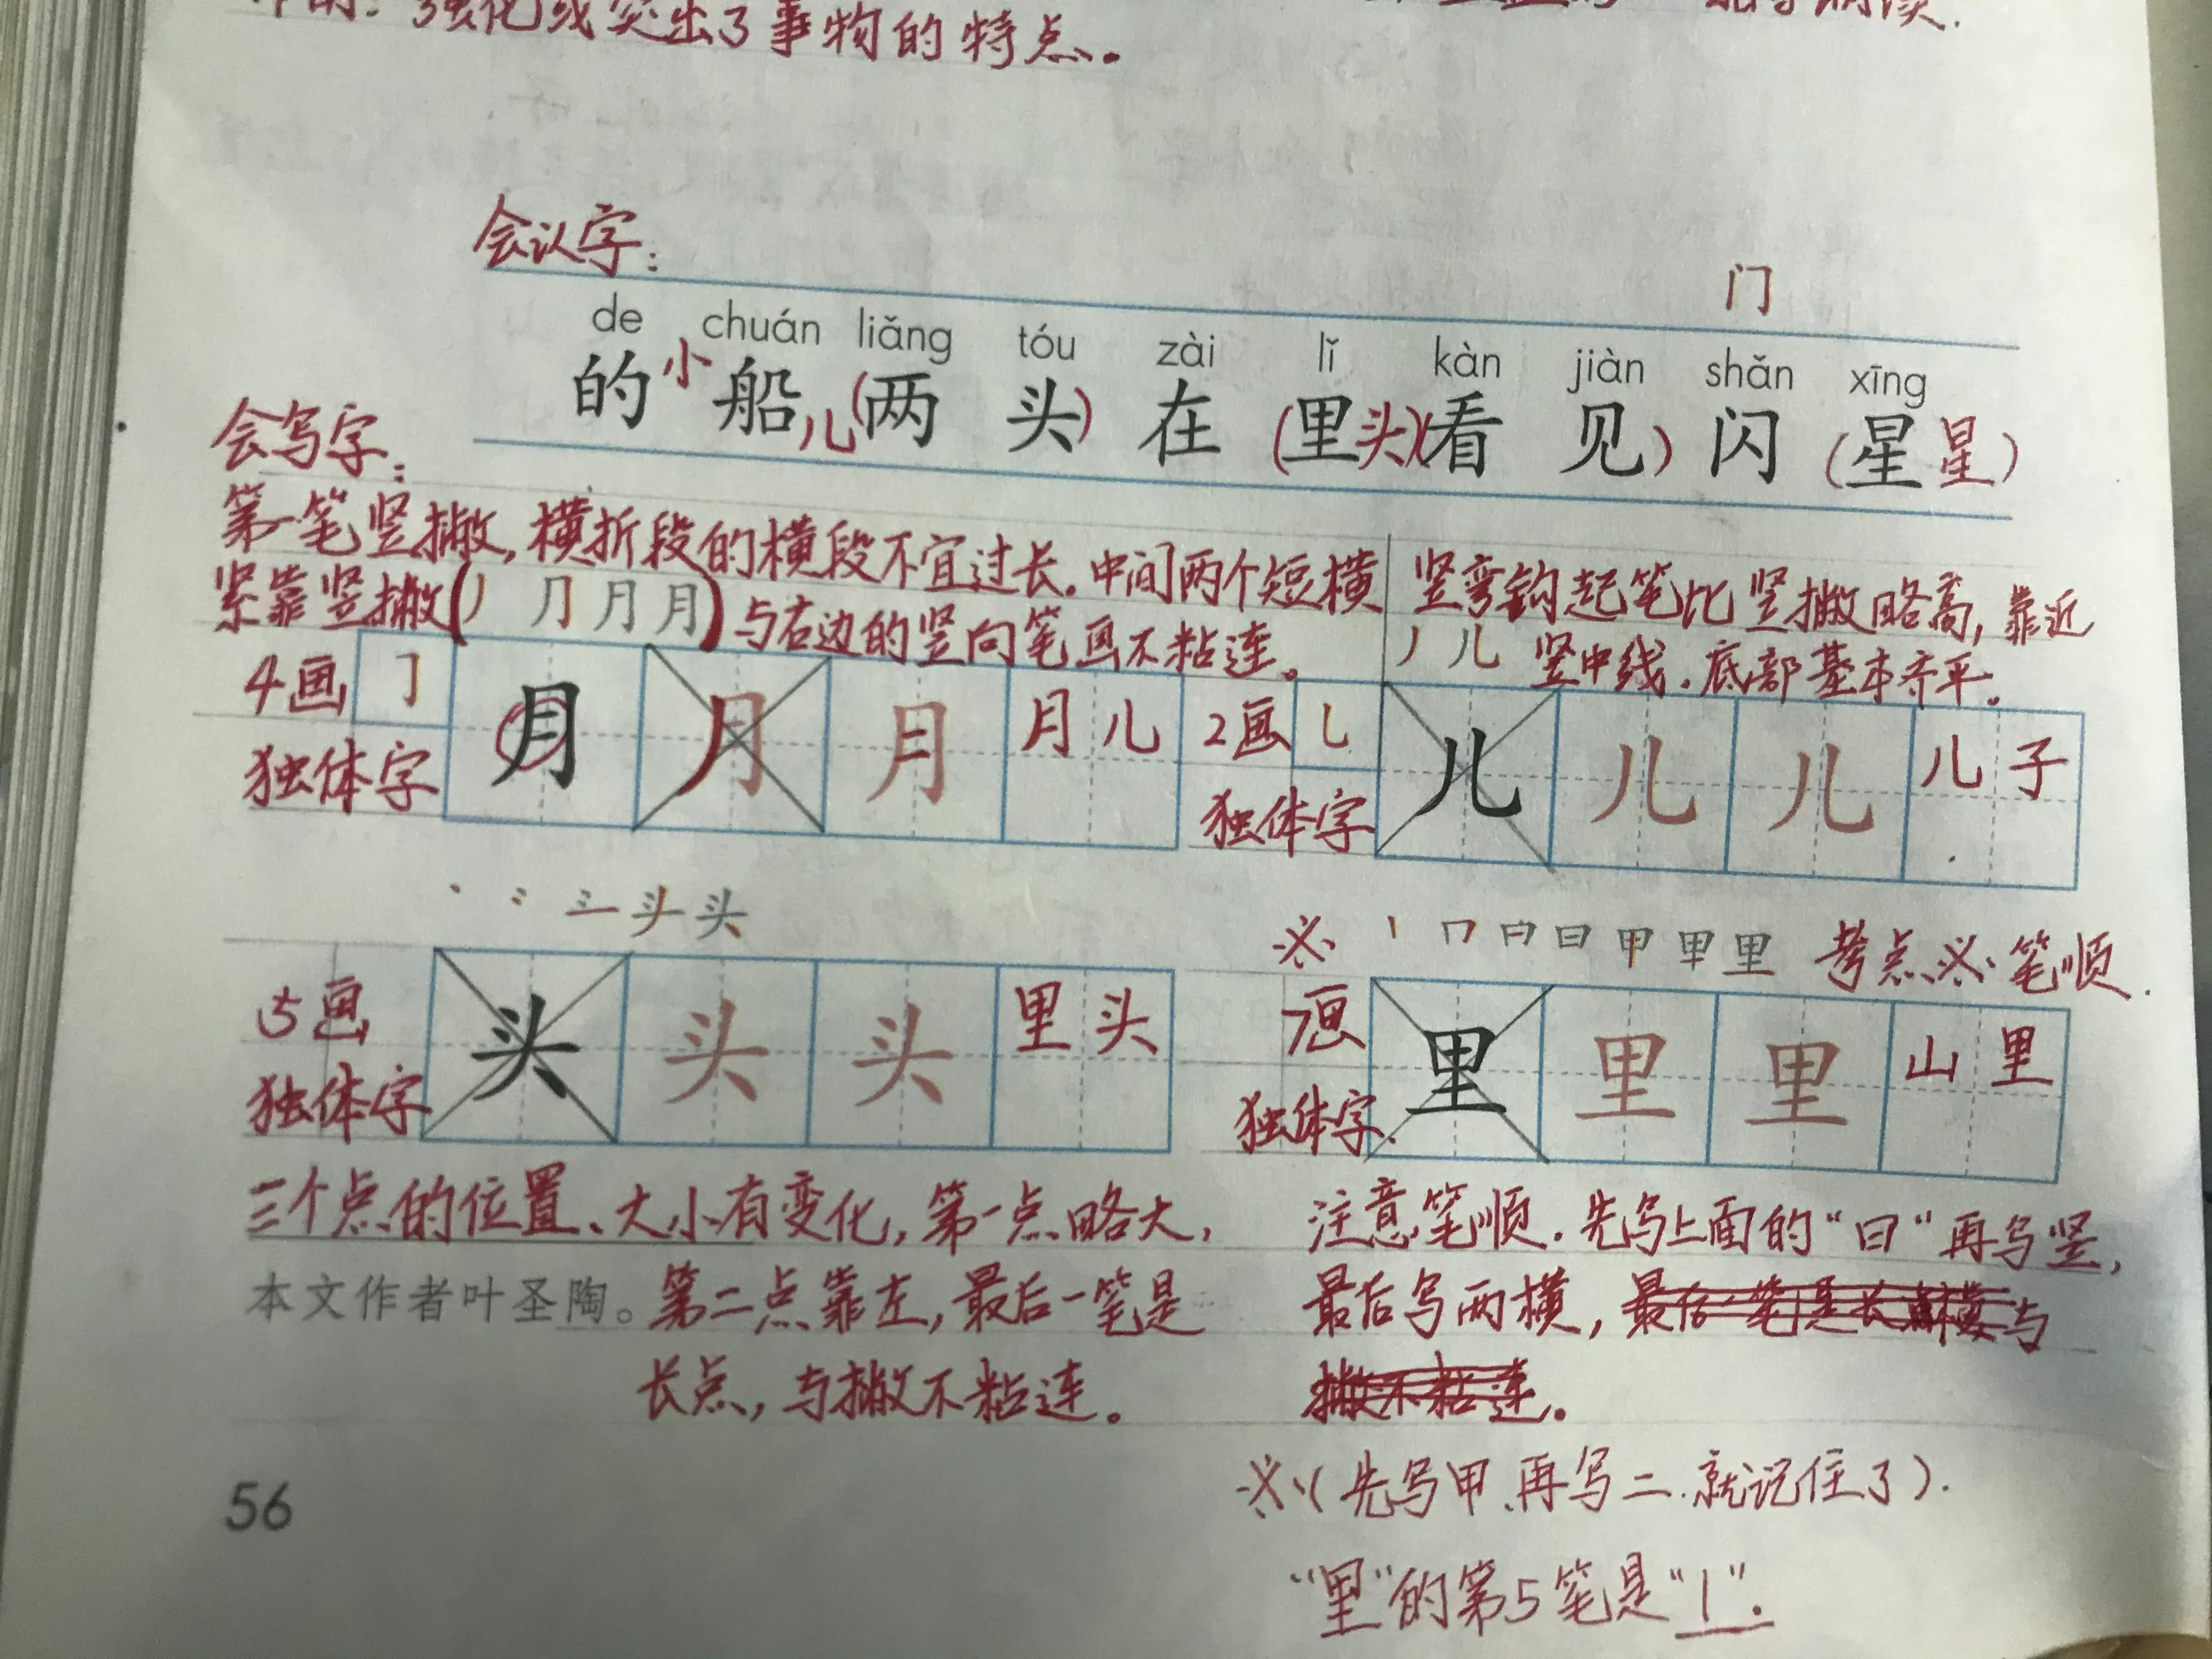 作的：强化或突出了事物的特点。
朗读.
会认字：
门
de chuán liǎng tóu zài lǐ kàn jiàn shǎn xīng
的小船儿(两头)在(里头)(看见)闪(星星)
会写字：
第一笔竖撇，横折段的横段不宜过长.中间两个短横
紧靠竖撇(丿 ⺆ 月 月)与右边的竖向笔画不粘连。
竖弯钩起笔比竖撇略高，靠近
丿 儿 竖中线.底部基本齐平。
4画 ㇆ 月 月 月 月儿
独体字
2画 乚 儿 儿 儿 儿子
独体字
丶 头 头
5画 头 头 头 里头
独体字
※ 丨 冂 日 甲 里 考点※笔顺.
7画 里 里 里 山里
独体字.
三个点的位置、大小有变化，第一点略大，
本文作者叶圣陶。第二点靠左，最后一笔是
长点，与撇不粘连。
注意笔顺.先写上面的“曰”再写竖，
最后写两横，最后一笔是长横与
撇不粘连。
※(先写甲、再写二.就记住了).
“里”的第5笔是“丨”.
56